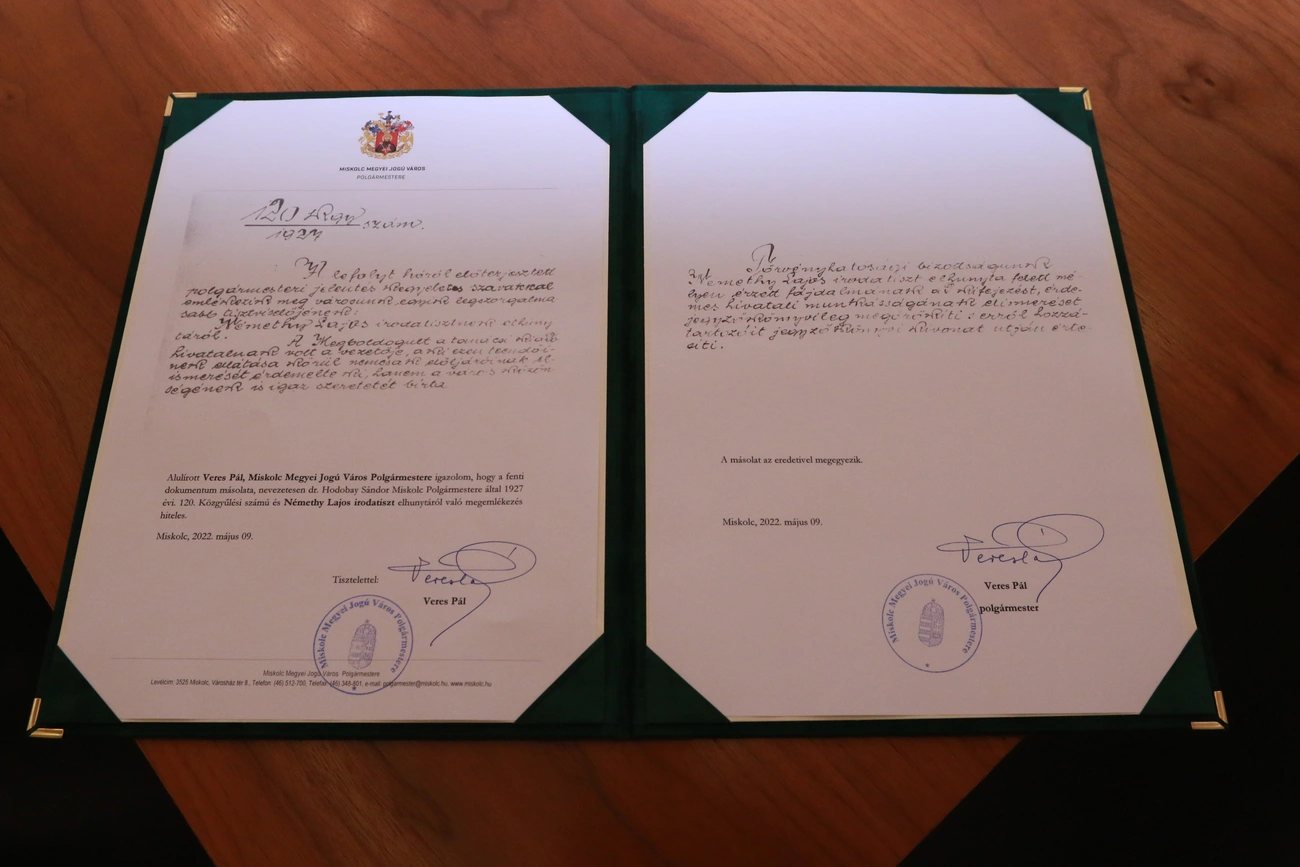 MISKOLC MEGYEI JOGÚ VÁROS
POLGÁRMESTERE
120 Kgy szám.
1927
A lefolyt hóról előterjesztett
polgármesteri jelentés kegyeletes szavakkal
emlékezik meg városunk egyik legszorgalma
sabb tisztviselőjének:
Némethy Lajos irodatisztnek elhuny
táról.
A Megboldogult a tanács kiadó
hivatalnak volt a vezetője, aki ezen teendői-
nek ellátása körül nemcsak elöljáróinak el-
ismerését érdemelte ki, hanem a város közön
ségének is igaz szeretetét bírta
Alulírott Veres Pál, Miskolc Megyei Jogú Város Polgármestere igazolom, hogy a fenti
dokumentum másolata, nevezetesen dr. Hodobay Sándor Miskolc Polgármestere által 1927
évi. 120. Közgyűlési számú és Némethy Lajos irodatiszt elhunytáról való megemlékezés
hiteles.
Miskolc, 2022. május 09.
Tisztelettel:
Veres Pál
Miskolc Megyei Jogú Város Polgármestere
Miskolc Megyei Jogú Város Polgármestere
Levélcím: 3525 Miskolc, Városház tér 8., Telefon: (46) 512-700, Telefax: (46) 348-801, e-mail: polgarmester@miskolc.hu, www.miskolc.hu
A Törvényhatósági bizottságunk
Némethy Lajos irodatiszt elhunyta felett mé-
lyen érzett fájdalmának ad kifejezést, érde-
mes hivatali munkásságának elismerését
jegyzőkönyvileg megörökíti s erről hozzá-
tartozóit jegyzőkönyvi kivonat utján érte-
síti.
A másolat az eredetivel megegyezik.
Miskolc, 2022. május 09.
Veres Pál
polgármester
Miskolc Megyei Jogú Város Polgármestere